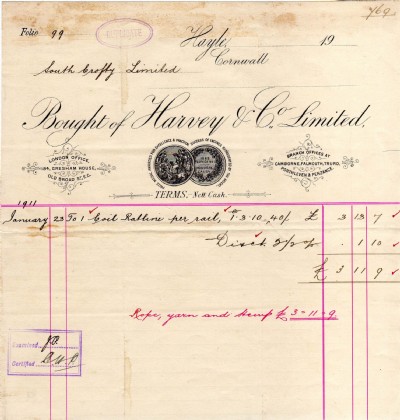 769
Folio 99
Hayle,
Cornwall
19
South Crofty Limited
Bought of Harvey & Co. Limited,
LONDON OFFICE,
GRESHAM HOUSE,
OLD BROAD ST. E.C.
BRANCH OFFICES AT
CAMBORNE, FALMOUTH, TRURO,
PORTHLEVEN & PENZANCE.
TERMS, Nett Cash.
1911
January 23 To 1 Coil Ratline per rail, 1. 3. 10, 40/- £ 3 13 7
Disct 2½ % 1 10
£ 3 11 9
Rope, yarn and hemp £ 3-11-9
Examined
Certified